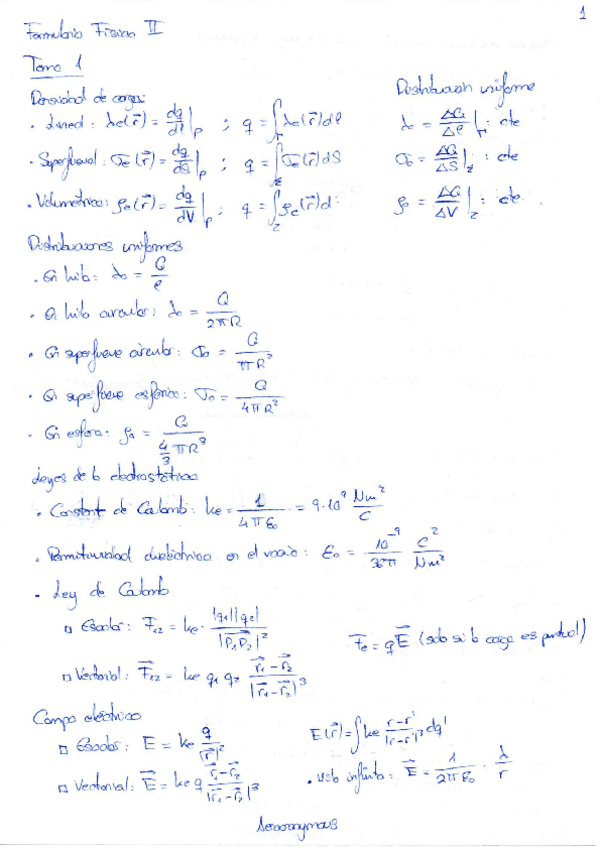 1
Formulario Física II
Tema 1
Densidad de carga:
Distribución uniforme
· Lineal: λe(r⃗) = dq/dl|p ; q = ∫r λe(r⃗)dl
λo = ΔQ/Δl|r : cte
· Superficial: σe(r⃗) = dq/dS|p ; q = ∫Σ σe(r⃗)dS
σo = ΔQ/ΔS|Σ : cte
· Volumétrica: ρe(r⃗) = dq/dV|p ; q = ∫τ ρe(r⃗)d
ρo = ΔQ/ΔV|τ : cte
Distribuciones uniformes
· En hilo: λo = Q/l
· En hilo circular: λo = Q/2πR
· En superficie circular: σo = Q/πR²
· En superficie esférica: σo = Q/4πR²
· En esfera: ρo = Q/(4/3 πR³)
Leyes de la electrostática
· Constant de Coulomb: ke = 1/4πεo = 9·10⁹ Nm²/C
· Permitividad dieléctrica en el vacío: εo = 10⁻⁹/36π C²/Nm²
- Ley de Coulomb
▫ Escalar: F₁₂ = ke · |q₁||q₂|/|P₁P₂|²
F⃗e = qE⃗ (solo si la carga es puntual)
▫ Vectorial: F⃗₁₂ = ke q₁ q₂ (r⃗₁-r⃗₂)/|r⃗₁-r⃗₂|³
Campo eléctrico
▫ Escalar: E = ke q/|r⃗|²
E(r⃗) = ∫ke (r-r')/|r-r'|³ dq'
▫ Vectorial: E⃗ = ke q (r⃗₁-r⃗₂)/|r⃗₁-r⃗₂|³
· Hilo infinito: E⃗ = 1/2πεo · λ/r